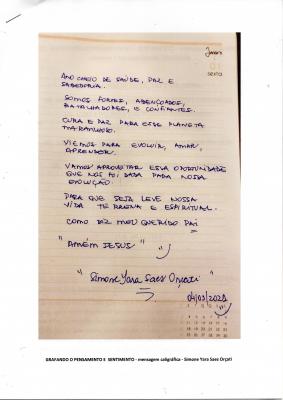 Janeiro
01
sexta
ANO CHEIO DE SAÚDE, PAZ E
SABEDORIA.
SOMOS FORTES, ABENÇOADOS,
BATALHADORES, E CONFIANTES.
CURA E PAZ PARA ESSE PLANETA
MARAVILHOSO.
VIEMOS PARA EVOLUIR, AMAR,
APRENDER.
VAMOS APROVEITAR ESSA OPORTUNIDADE
QUE NOS FOI DADA PARA NOSSA
EVOLUÇÃO.
PARA QUE SEJA LEVE NOSSA
VIDA TERRENA E ESPIRITUAL.
COMO DIZ MEU QUERIDO PAI
"AMÉM JESUS"
"Simone Yara Saes Orçati"
04/03/2021
GRAFANDO O PENSAMENTO E SENTIMENTO - mensagem caligráfica - Simone Yara Saes Orçati